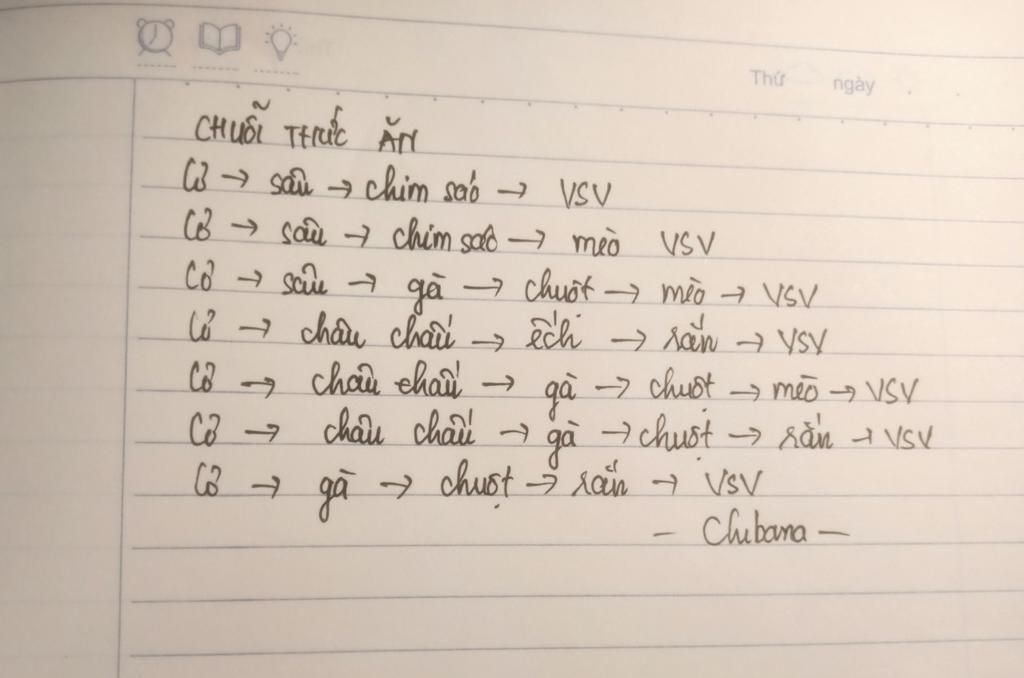 Thứ ngày
CHUỖI THỨC ĂN
Cỏ → sâu → chim sáo → VSV
Cỏ → sâu → chim sáo → mèo VSV
Cỏ → sâu → gà → chuột → mèo → VSV
Cỏ → châu chấu → ếch → rắn → VSV
Cỏ → châu chấu → gà → chuột → mèo → VSV
Cỏ → châu chấu → gà → chuột → rắn → VSV
Cỏ → gà → chuột → rắn → VSV
— Chibana —